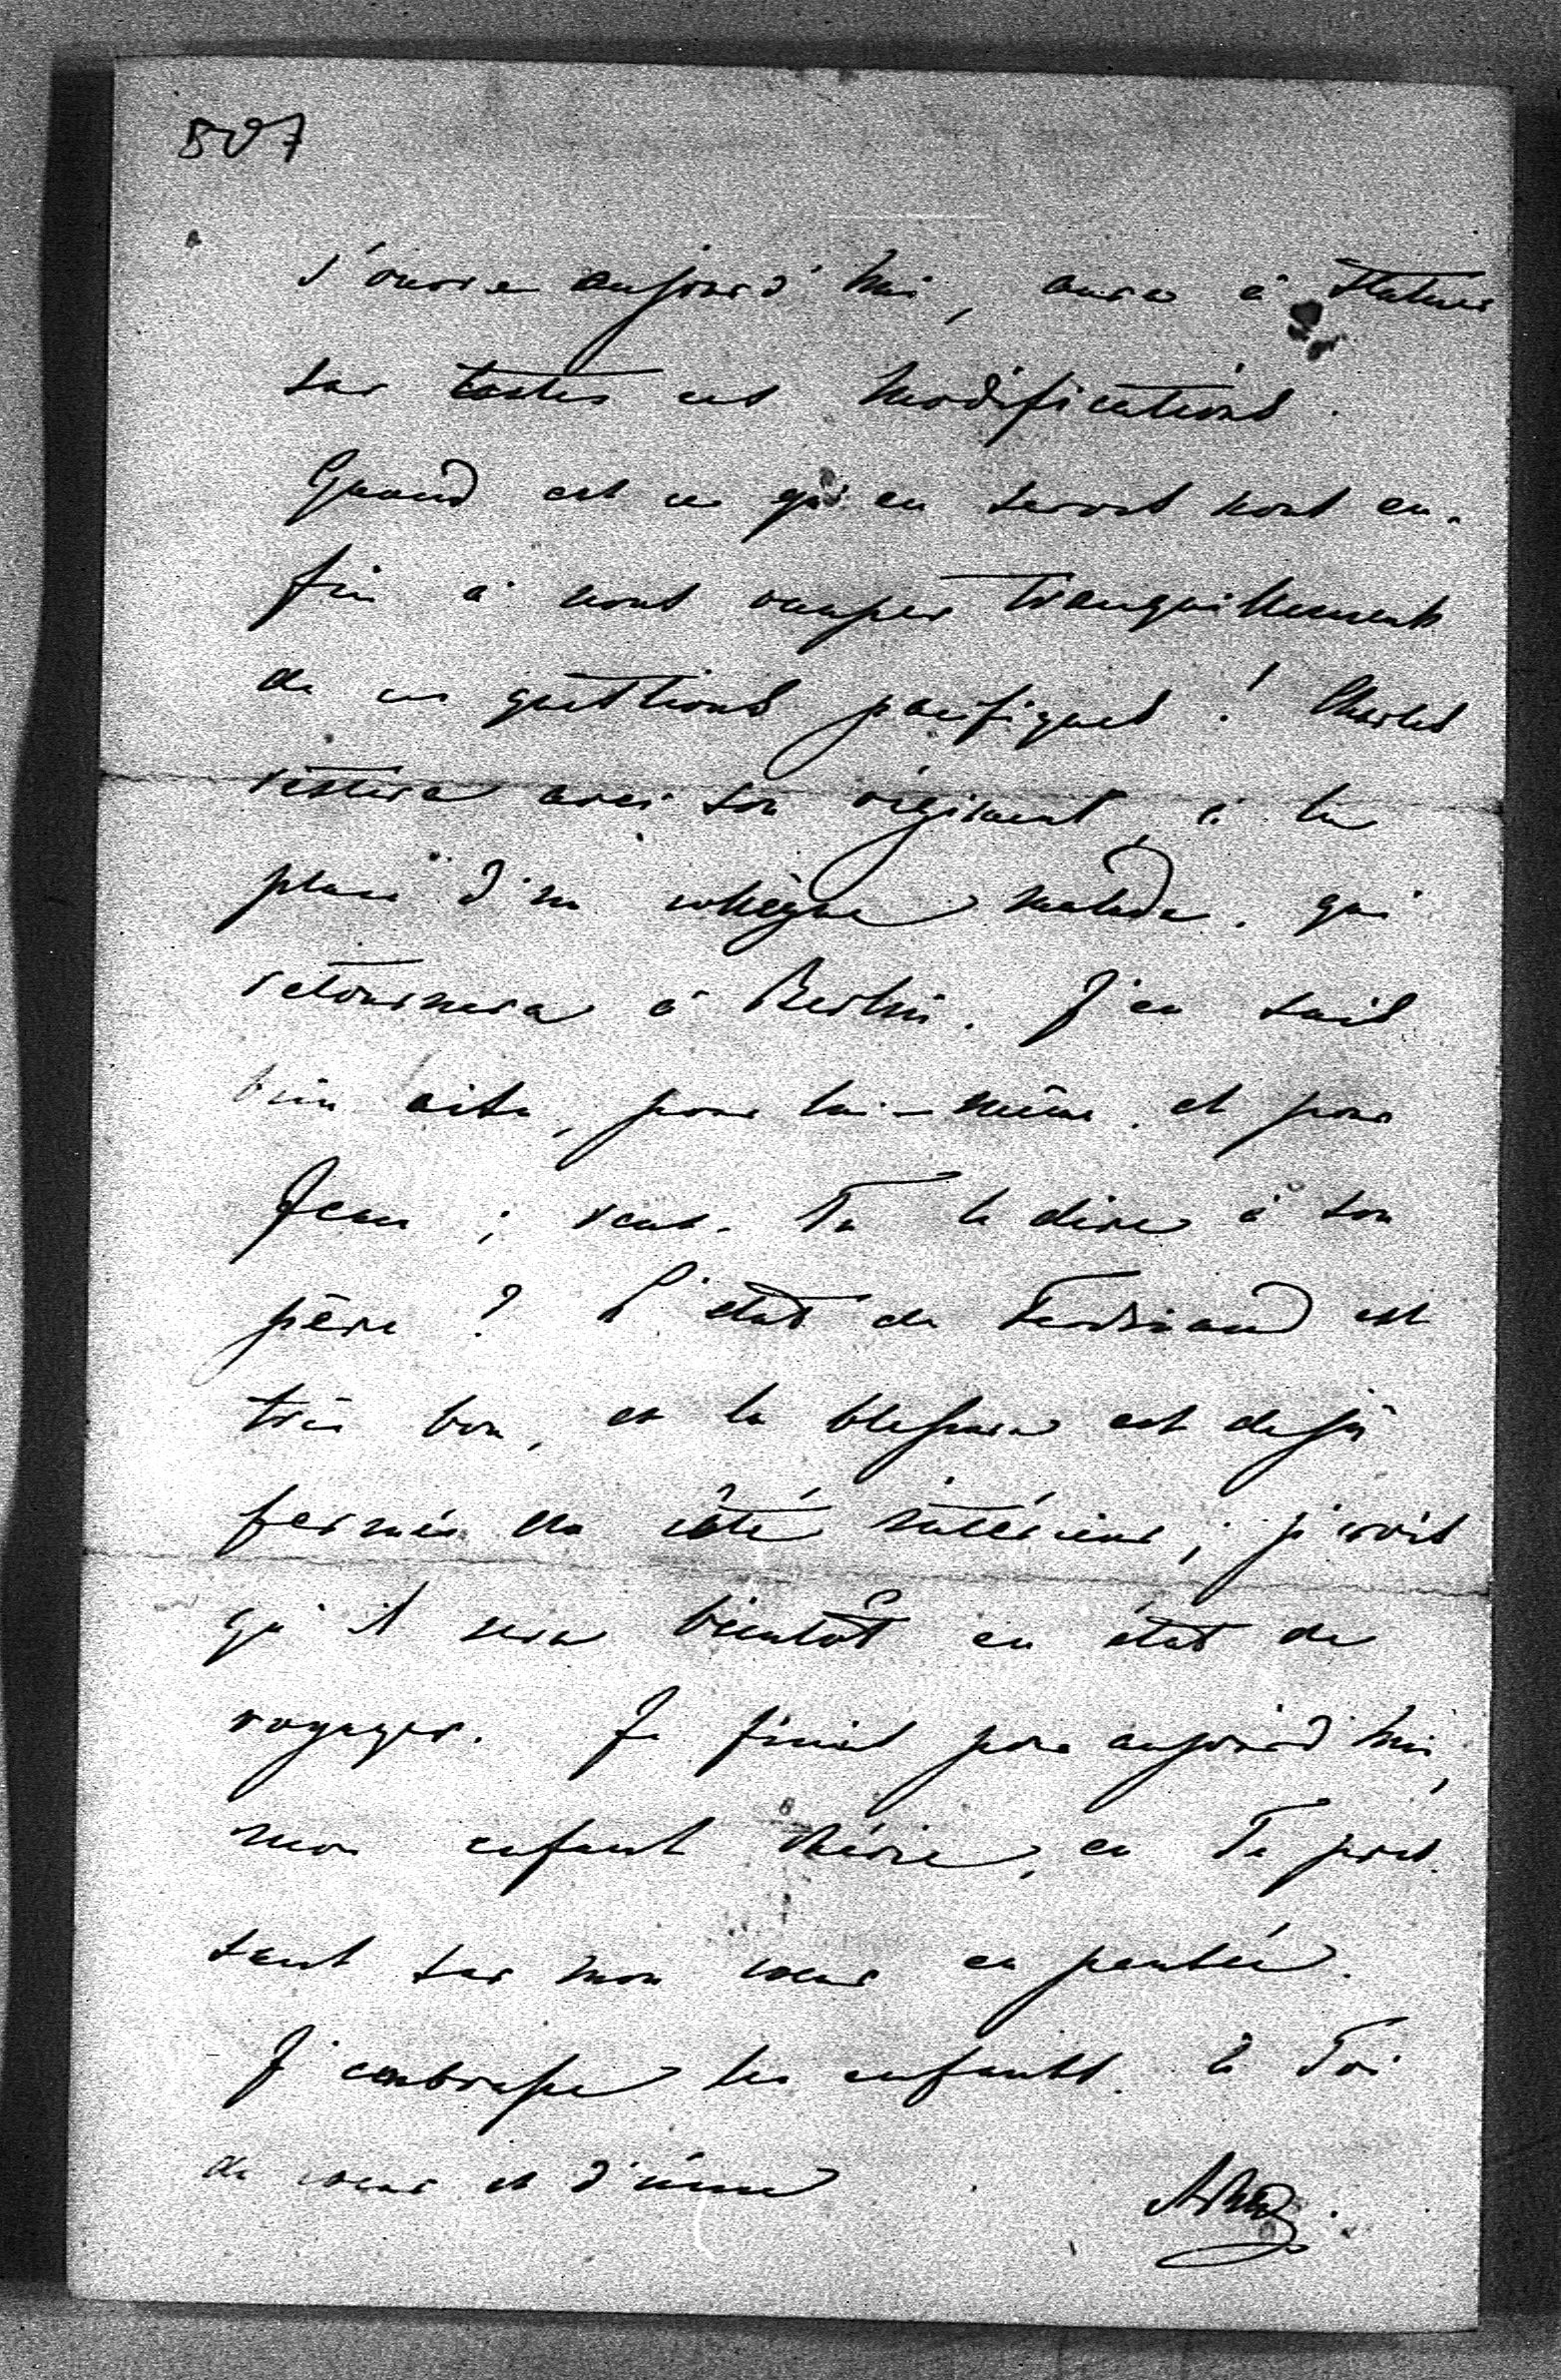 507
s'ouvre aujourd'hui, aura à statuer
sur toutes ces modifications.
Quand est ce qu'en serons nous en-
fin à nous occuper tranquillement
de ces questions pacifiques! Charles
restera avec son régiment, à la
place d'un collègue malade, qui
retournera à Berlin. J'en suis
bien aise, pour lui-même, et pour
Jean; veux-Tu le dire à son
père? L'état de Ferdinand est
très bon, et la blessure est dejà
fermée du côté intérieur; je crois
qu'il sera bientôt en état de
voyager. Je finis pour aujourd'hui,
mon enfant chérie, en Te pres-
sant sur mon coeur en pensée.
J'embrasse les enfants. à Toi
de coeur et d'âme